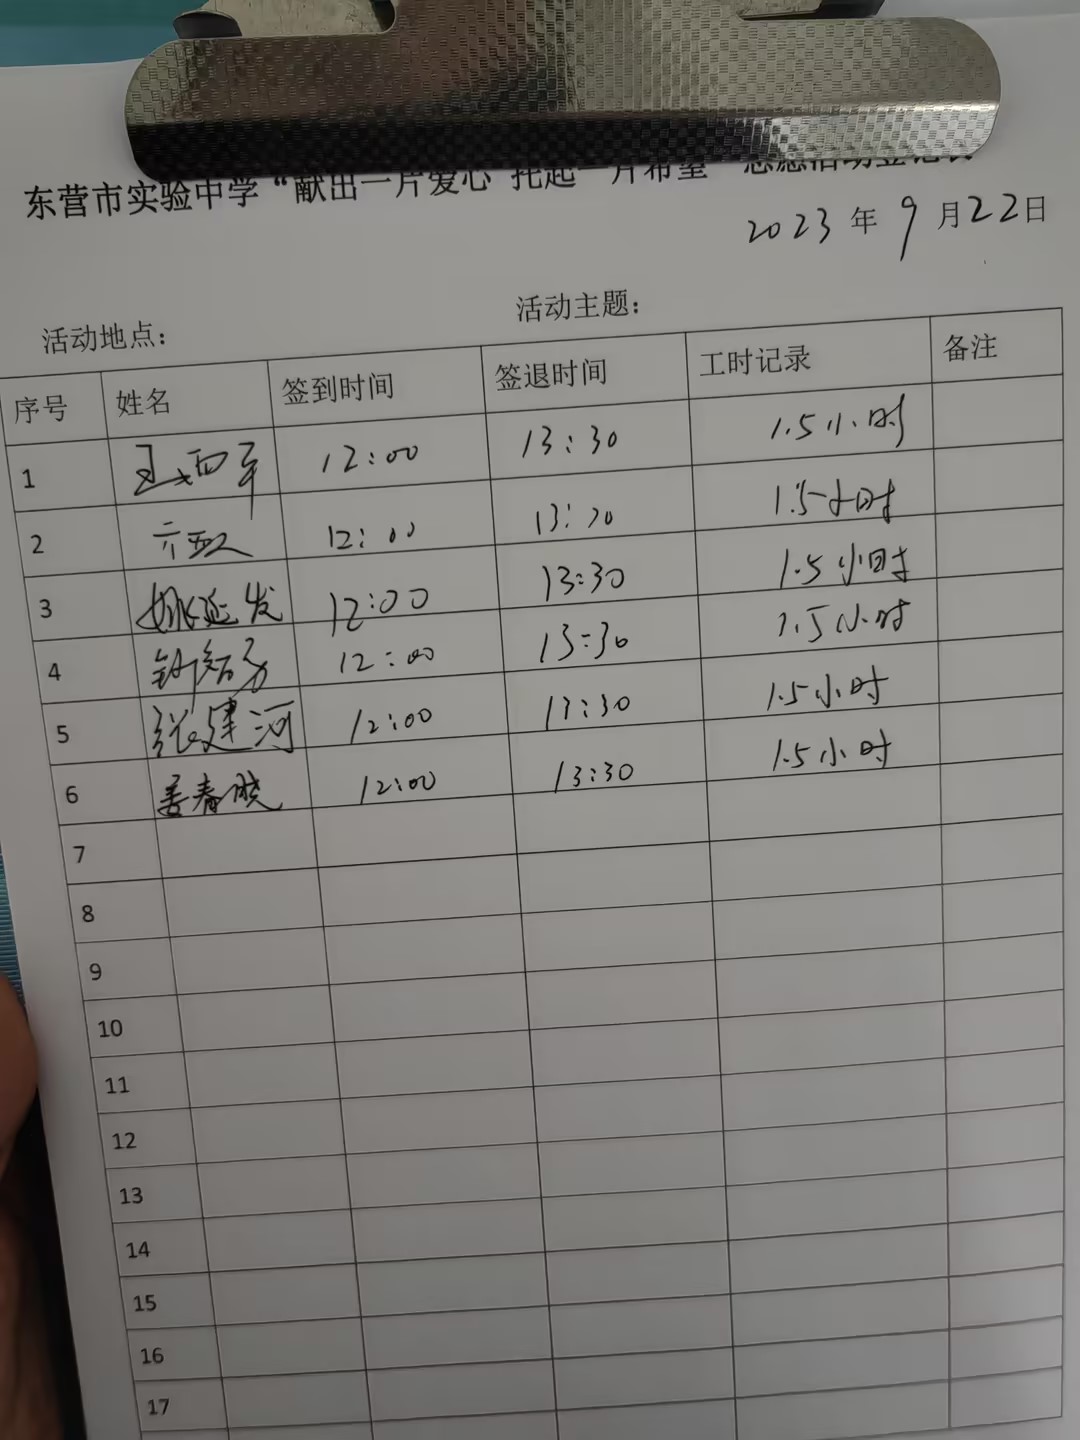 东营市实验中学“献出一片爱心 托起一片希望”志愿活动登记表
2023 年 9 月 22 日
活动地点： 活动主题：
序号 姓名 签到时间 签退时间 工时记录 备注
1 12:00 13:30 1.5小时
2 12:00 13:30 1.5小时
3 姚延发 12:00 13:30 1.5小时
4 12:00 13:30 1.5小时
5 张建河 12:00 13:30 1.5小时
6 姜春晓 12:00 13:30 1.5小时
7
8
9
10
11
12
13
14
15
16
17